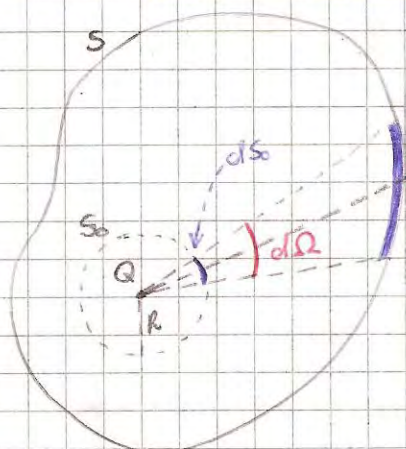 S
dS₀
S₀
Q
dΩ
R